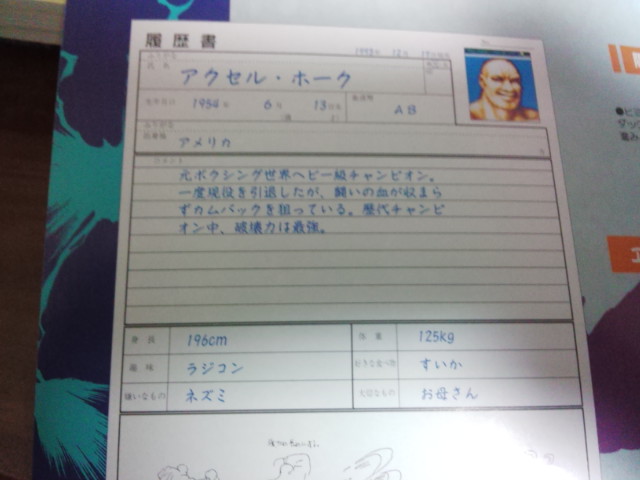 履歴書
1992年 12月
氏名 アクセル・ホーク
生年月日 1954年 6月 13日生
AB
アメリカ
元ボクシング世界ヘビー級チャンピオン。
一度現役を引退したが、闘いの血が収まら
ずカムバックを狙っている。歴代チャンピ
オン中、破壊力は最強。
身長 196cm 体重 125kg
趣味 ラジコン 好きな食べ物 すいか
嫌いなもの ネズミ 大切なもの お母さん